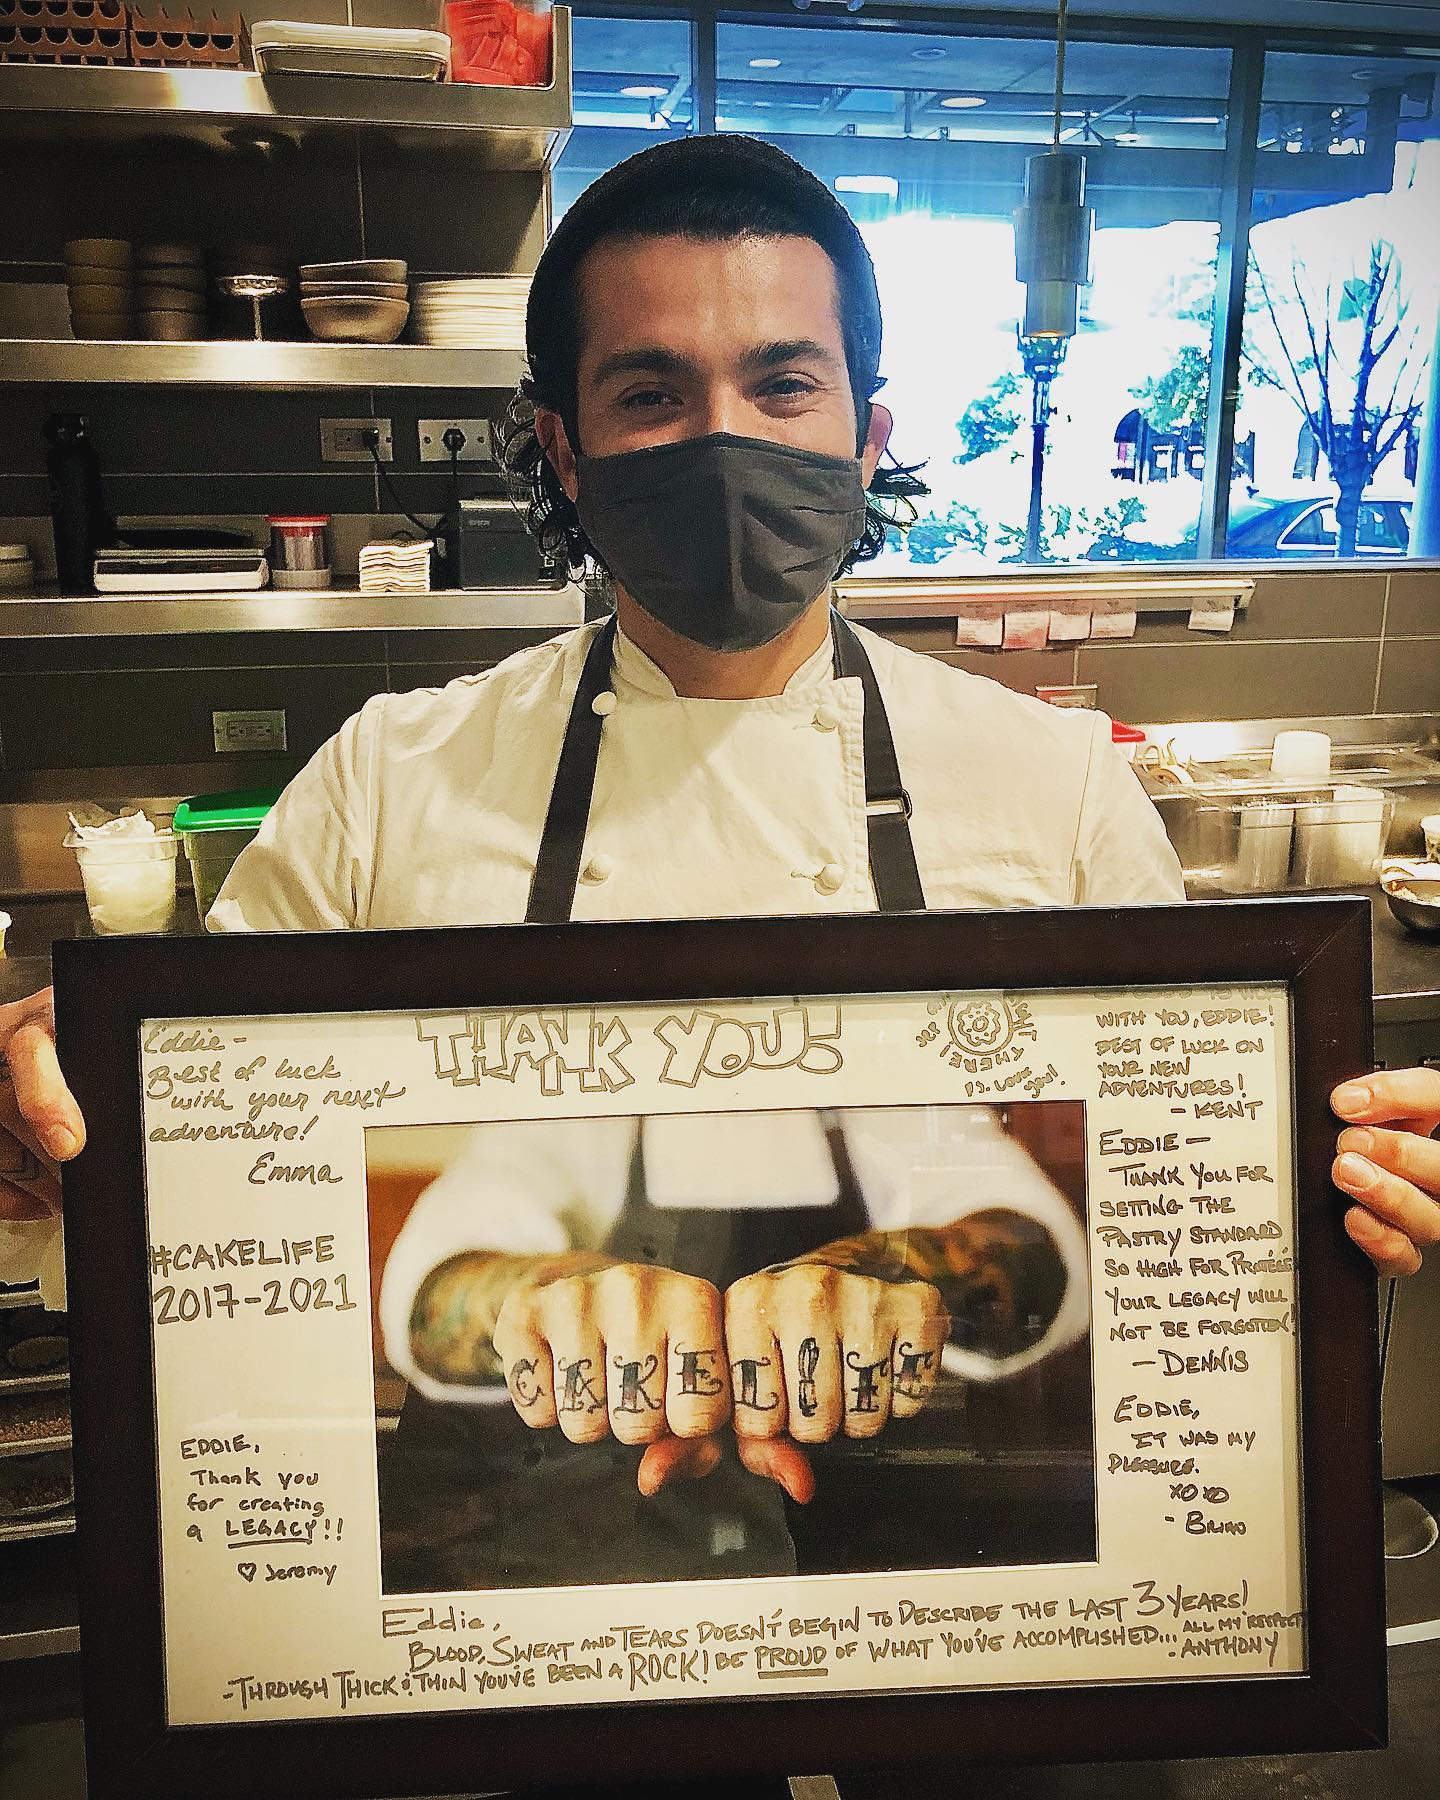 Eddie -
Best of luck
with your next
adventure!
Emma
#CAKELIFE
2017-2021
EDDIE,
Thank you
for creating
a LEGACY!!
♡ Jeromy
THANK YOU!
P.S. Love you!
WITH YOU, EDDIE!
BEST OF LUCK ON
YOUR NEW
ADVENTURES!
- KENT
EDDIE —
THANK YOU FOR
SETTING THE
PASTRY STANDARD
SO HIGH FOR
YOUR LEGACY WILL
NOT BE FORGOTTEN!
— DENNIS
EDDIE,
IT WAS MY
PLEASURE.
XOXO
-
CAKE L!FE
Eddie,
BLOOD, SWEAT AND TEARS DOESN'T BEGIN TO DESCRIBE THE LAST 3 YEARS!
-THROUGH THICK & THIN YOU'VE BEEN A ROCK! BE PROUD OF WHAT YOU'VE ACCOMPLISHED... ALL MY RESPECT
- ANTHONY